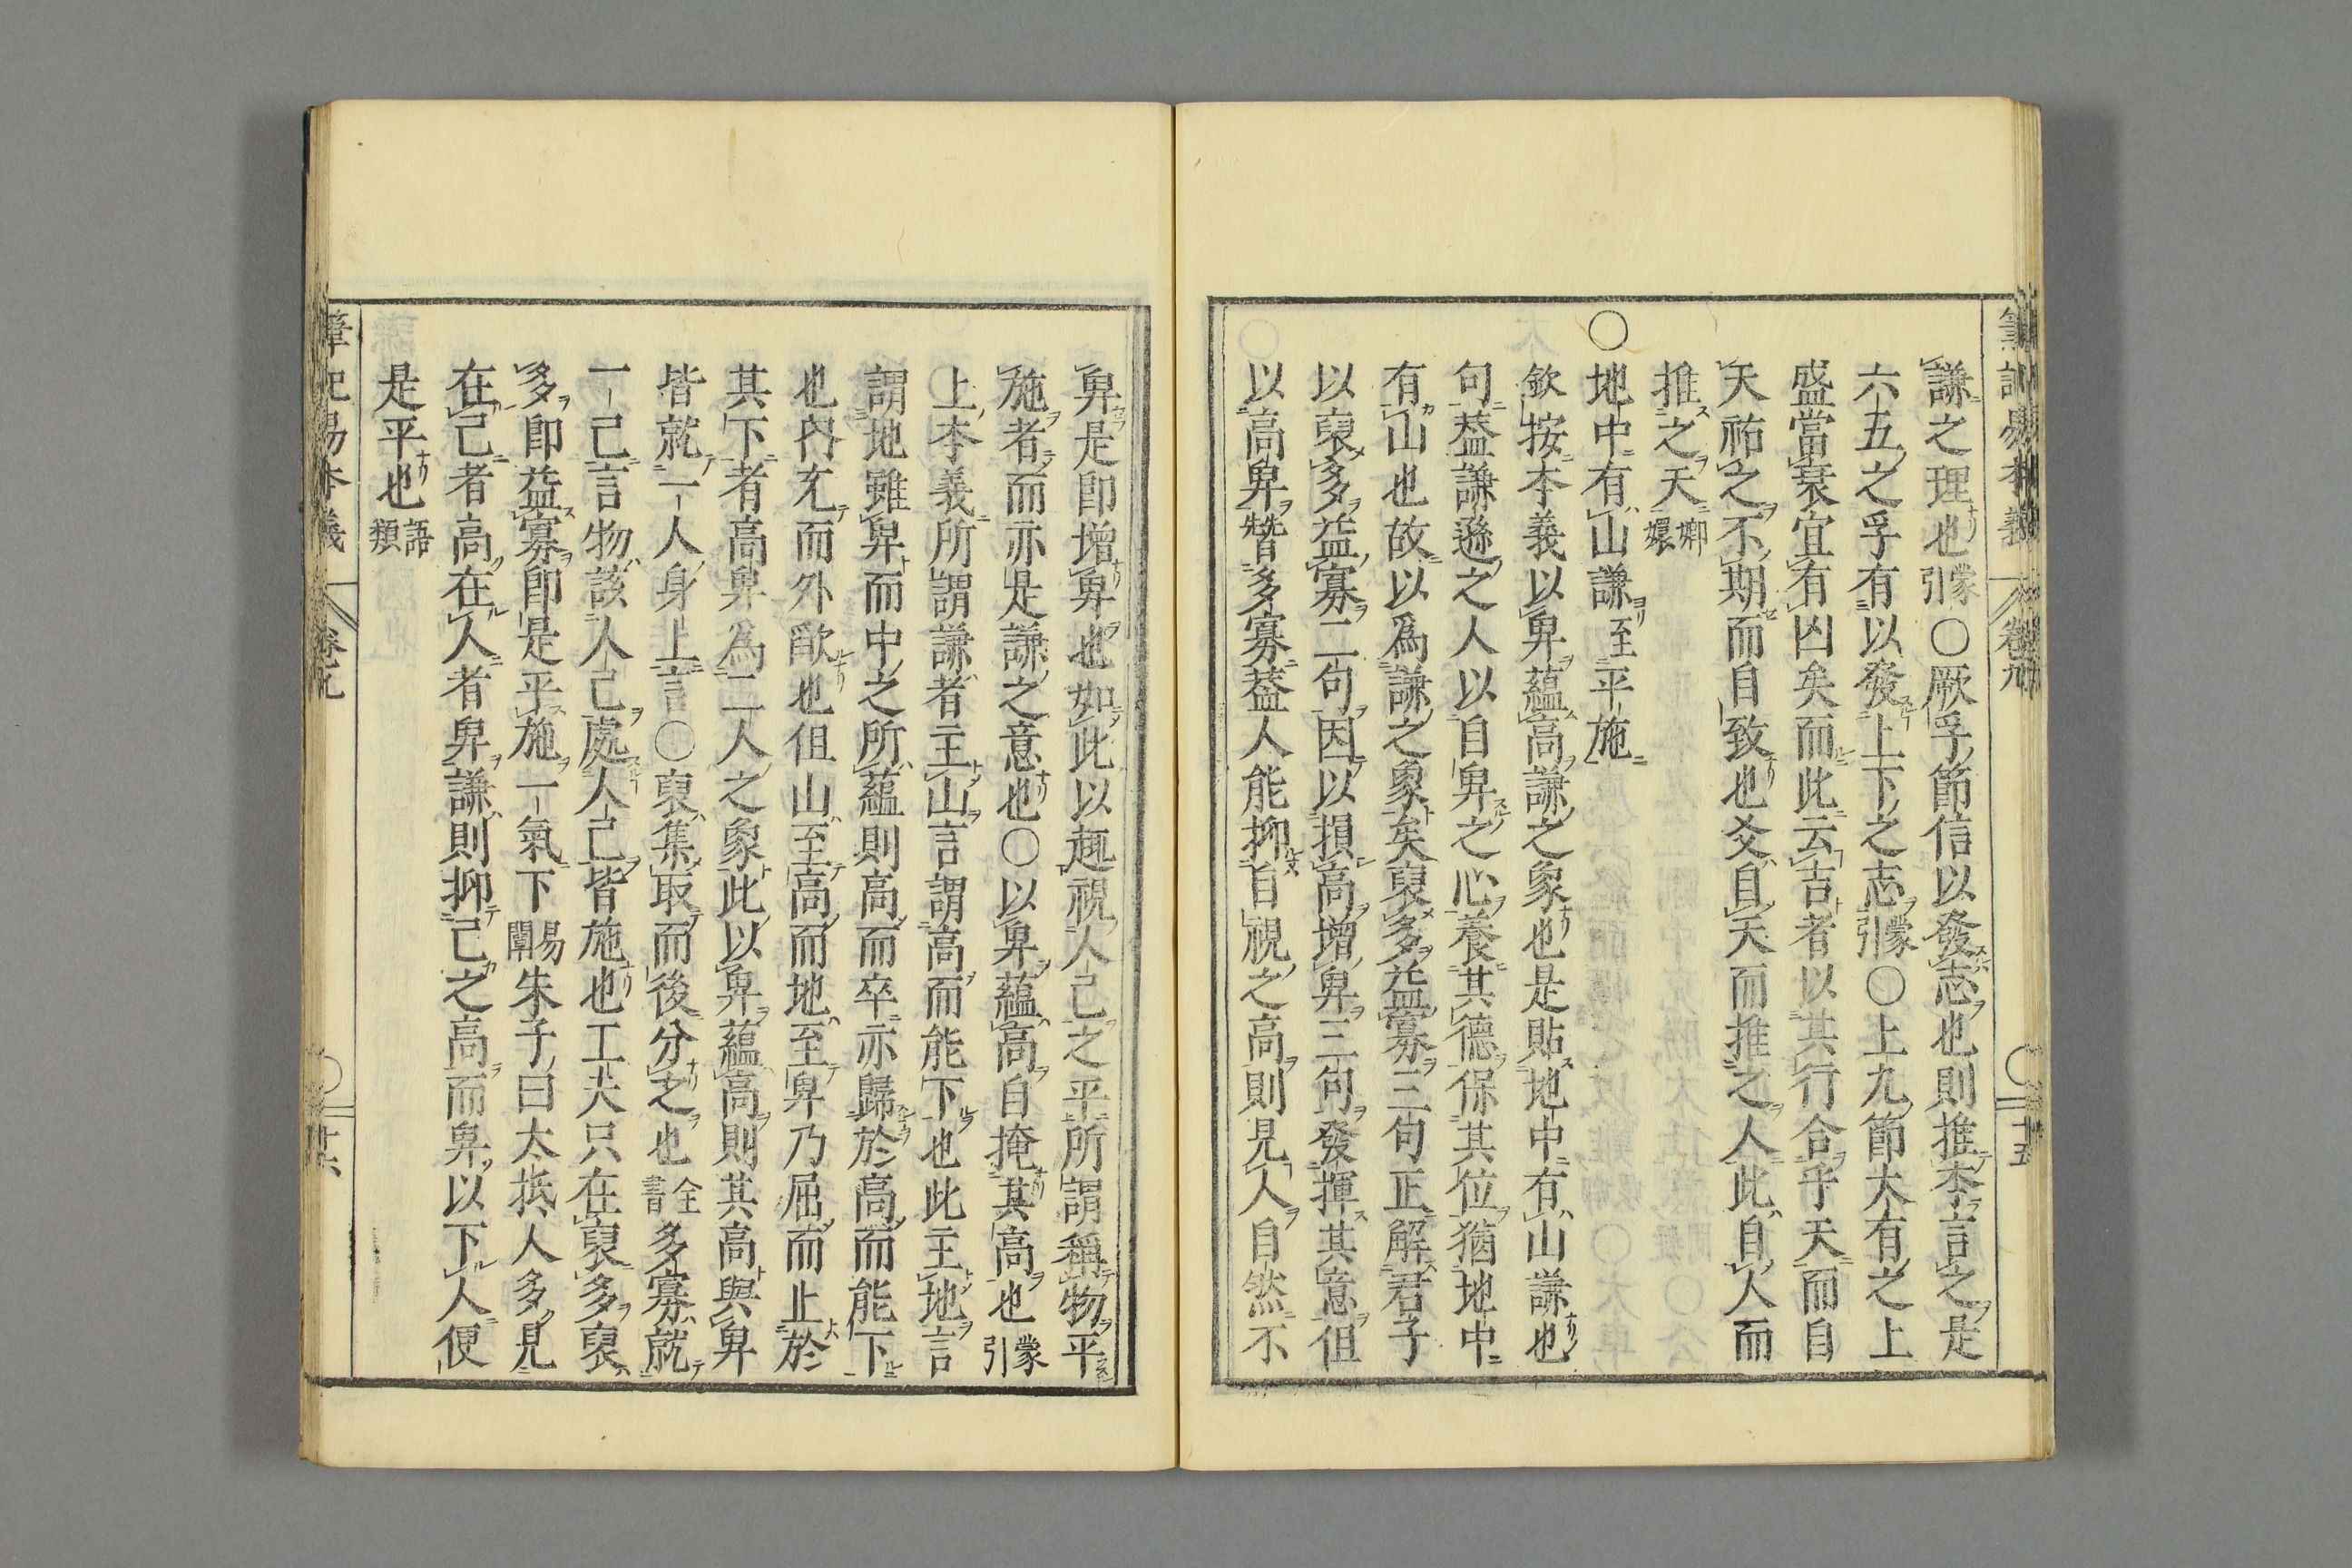 謙之理也蒙引○厥孚節信以發志也則推李言之是
六五之孚有以發上下之志蒙引○上九節大有之上
盛當衰宜有凶矣而此云吉者以其行合乎天而自
天祐之不期而自致也爻自天而推之人此自人而
推之天嫏嬛
○地中有山謙至平施
欽按本義以卑蘊高謙之象也是貼地中有山謙也
句葢謙遜之人以自卑之心養其德保其位猶地中
有山也故以爲謙之象矣裒多益寡三句正解君子
以裒多益寡二句因以損高增卑三句發揮其意但
以高卑替多寡葢人能抑自視之高則見人自然不
卑是卽增卑也如此以趣視人己之平所謂稱物平
施者而亦是謙之意也○以卑蘊高自掩其高也蒙引
上本義所謂謙者主山言謂高而能下也此主地言
謂地雖卑而中之所蘊則高而卒亦歸於高而能下
也內充而外歉也但山至高而地至卑乃屈而止於
其下者高卑爲二人之象此以卑蘊高則其高與卑
皆就一人身上言○裒集取而後分之也全書多寡就
一己言物該人己處人己皆施也工夫只在裒多裒
多卽益寡卽是平施一氣下易闡朱子曰大抵人多見
在己者高在人者卑謙則抑己之高而卑以下人便
是平也語類
筆記易本義 卷九 廿六